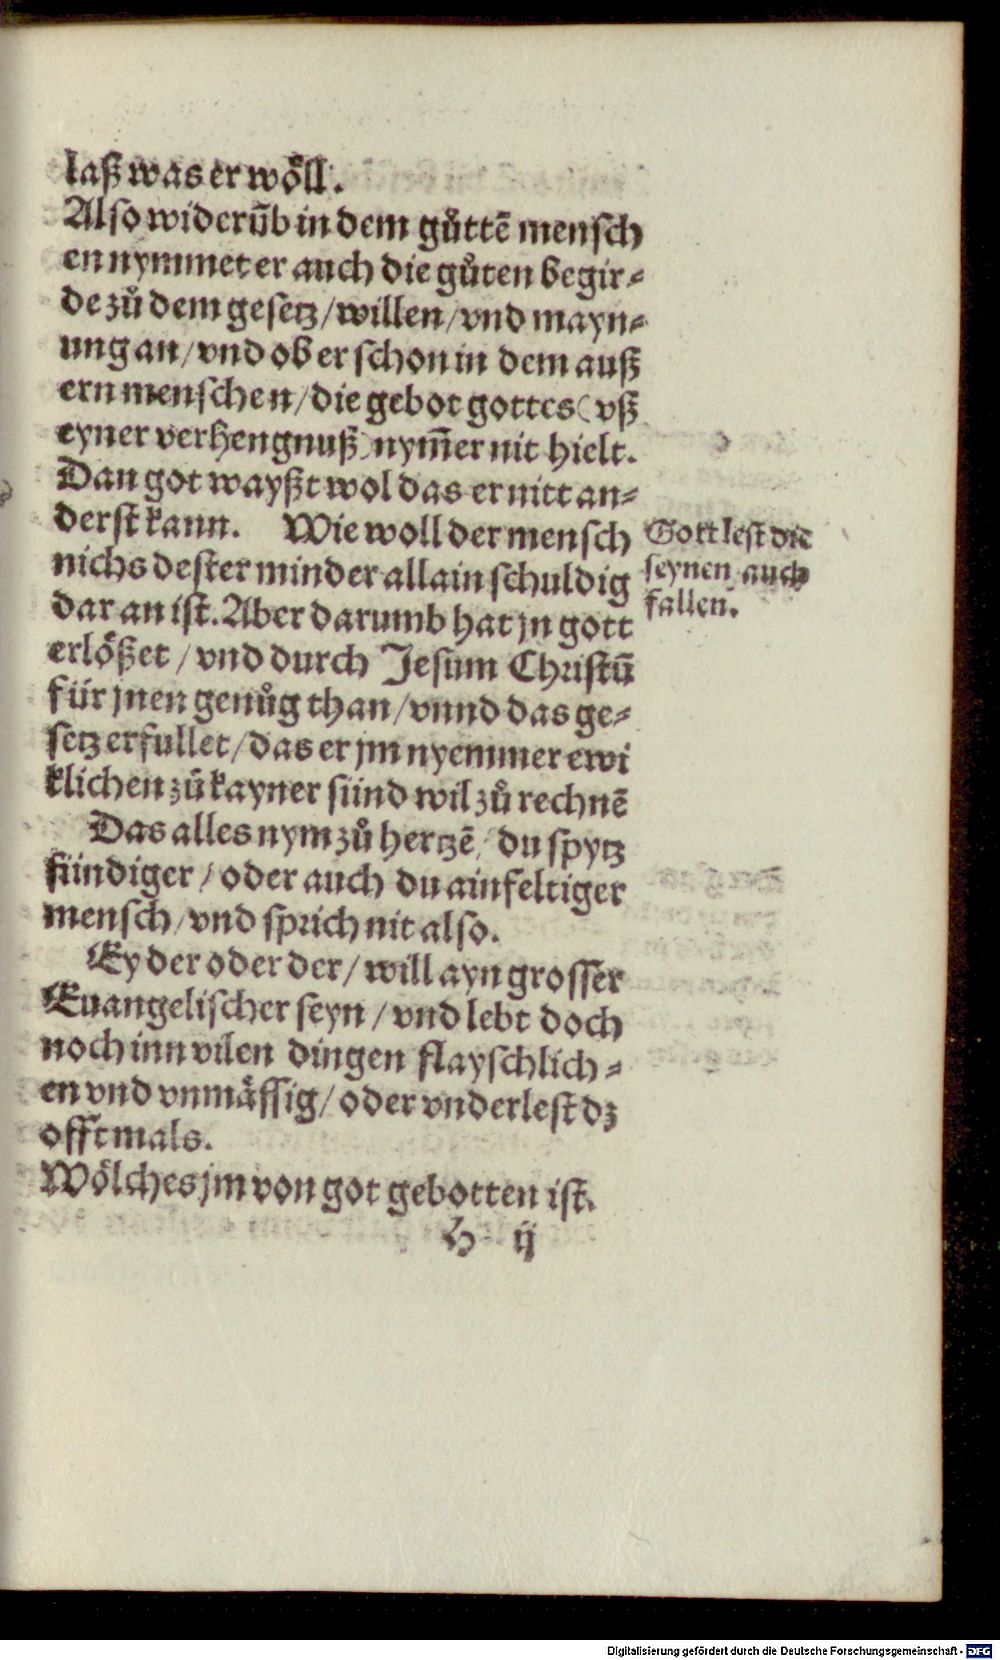 laß was er wöll.
Also widerūb in dem gůttē mensch
en nymmet er auch die gůten begir⸗
de zů dem gesetz/willen/vnd mayn⸗
ung an/vnd ob er schon in dem auß
ern menschen/die gebot gottes(vß
eyner verhengnuß)nym̄er nit hielt.
Dan got wayßt wol das er nitt an⸗
derst kann. Wie woll der mensch
nichs dester minder allain schuldig
dar an ist. Aber darumb hat jn gott
erlößet/vnd durch Jesum Christū
für jnen genůg than/vnnd das ge⸗
setz erfullet/das er jm nyemmer ewi
klichen zů kayner sünd wil zů rechnē
Das alles nym zů hertzē/du spytz
fündiger/oder auch du ainfeltiger
mensch/vnd sprich nit also.
Ey der oder der/will ayn grosser
Euangelischer seyn/vnd lebt doch
noch inn vilen dingen flayschlich⸗
en vnd vnmässig/oder vnderlest dz
offtmals.
Wölches jm von got gebotten ist.
H ij
Gott lest die
seynen auch
fallen.
Digitalisierung gefördert durch die Deutsche Forschungsgemeinschaft - DFG